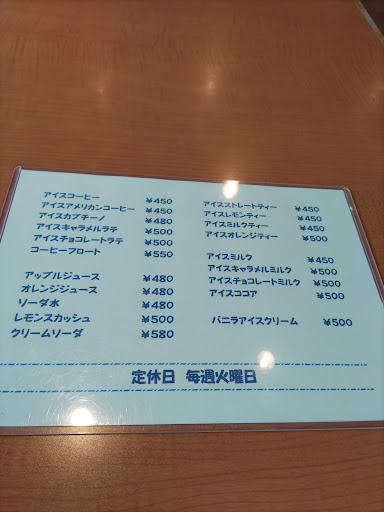 アイスコーヒー ¥450
アイスアメリカンコーヒー ¥450
アイスカプチーノ ¥480
アイスキャラメルラテ ¥500
アイスチョコレートラテ ¥500
コーヒーフロート ¥550
アップルジュース ¥480
オレンジジュース ¥480
ソーダ水 ¥480
レモンスカッシュ ¥500
クリームソーダ ¥580
アイスストレートティー ¥450
アイスレモンティー ¥450
アイスミルクティー ¥450
アイスオレンジティー ¥500
アイスミルク ¥450
アイスキャラメルミルク ¥500
アイスチョコレートミルク ¥500
アイスココア ¥500
バニラアイスクリーム ¥500
定休日 毎週火曜日